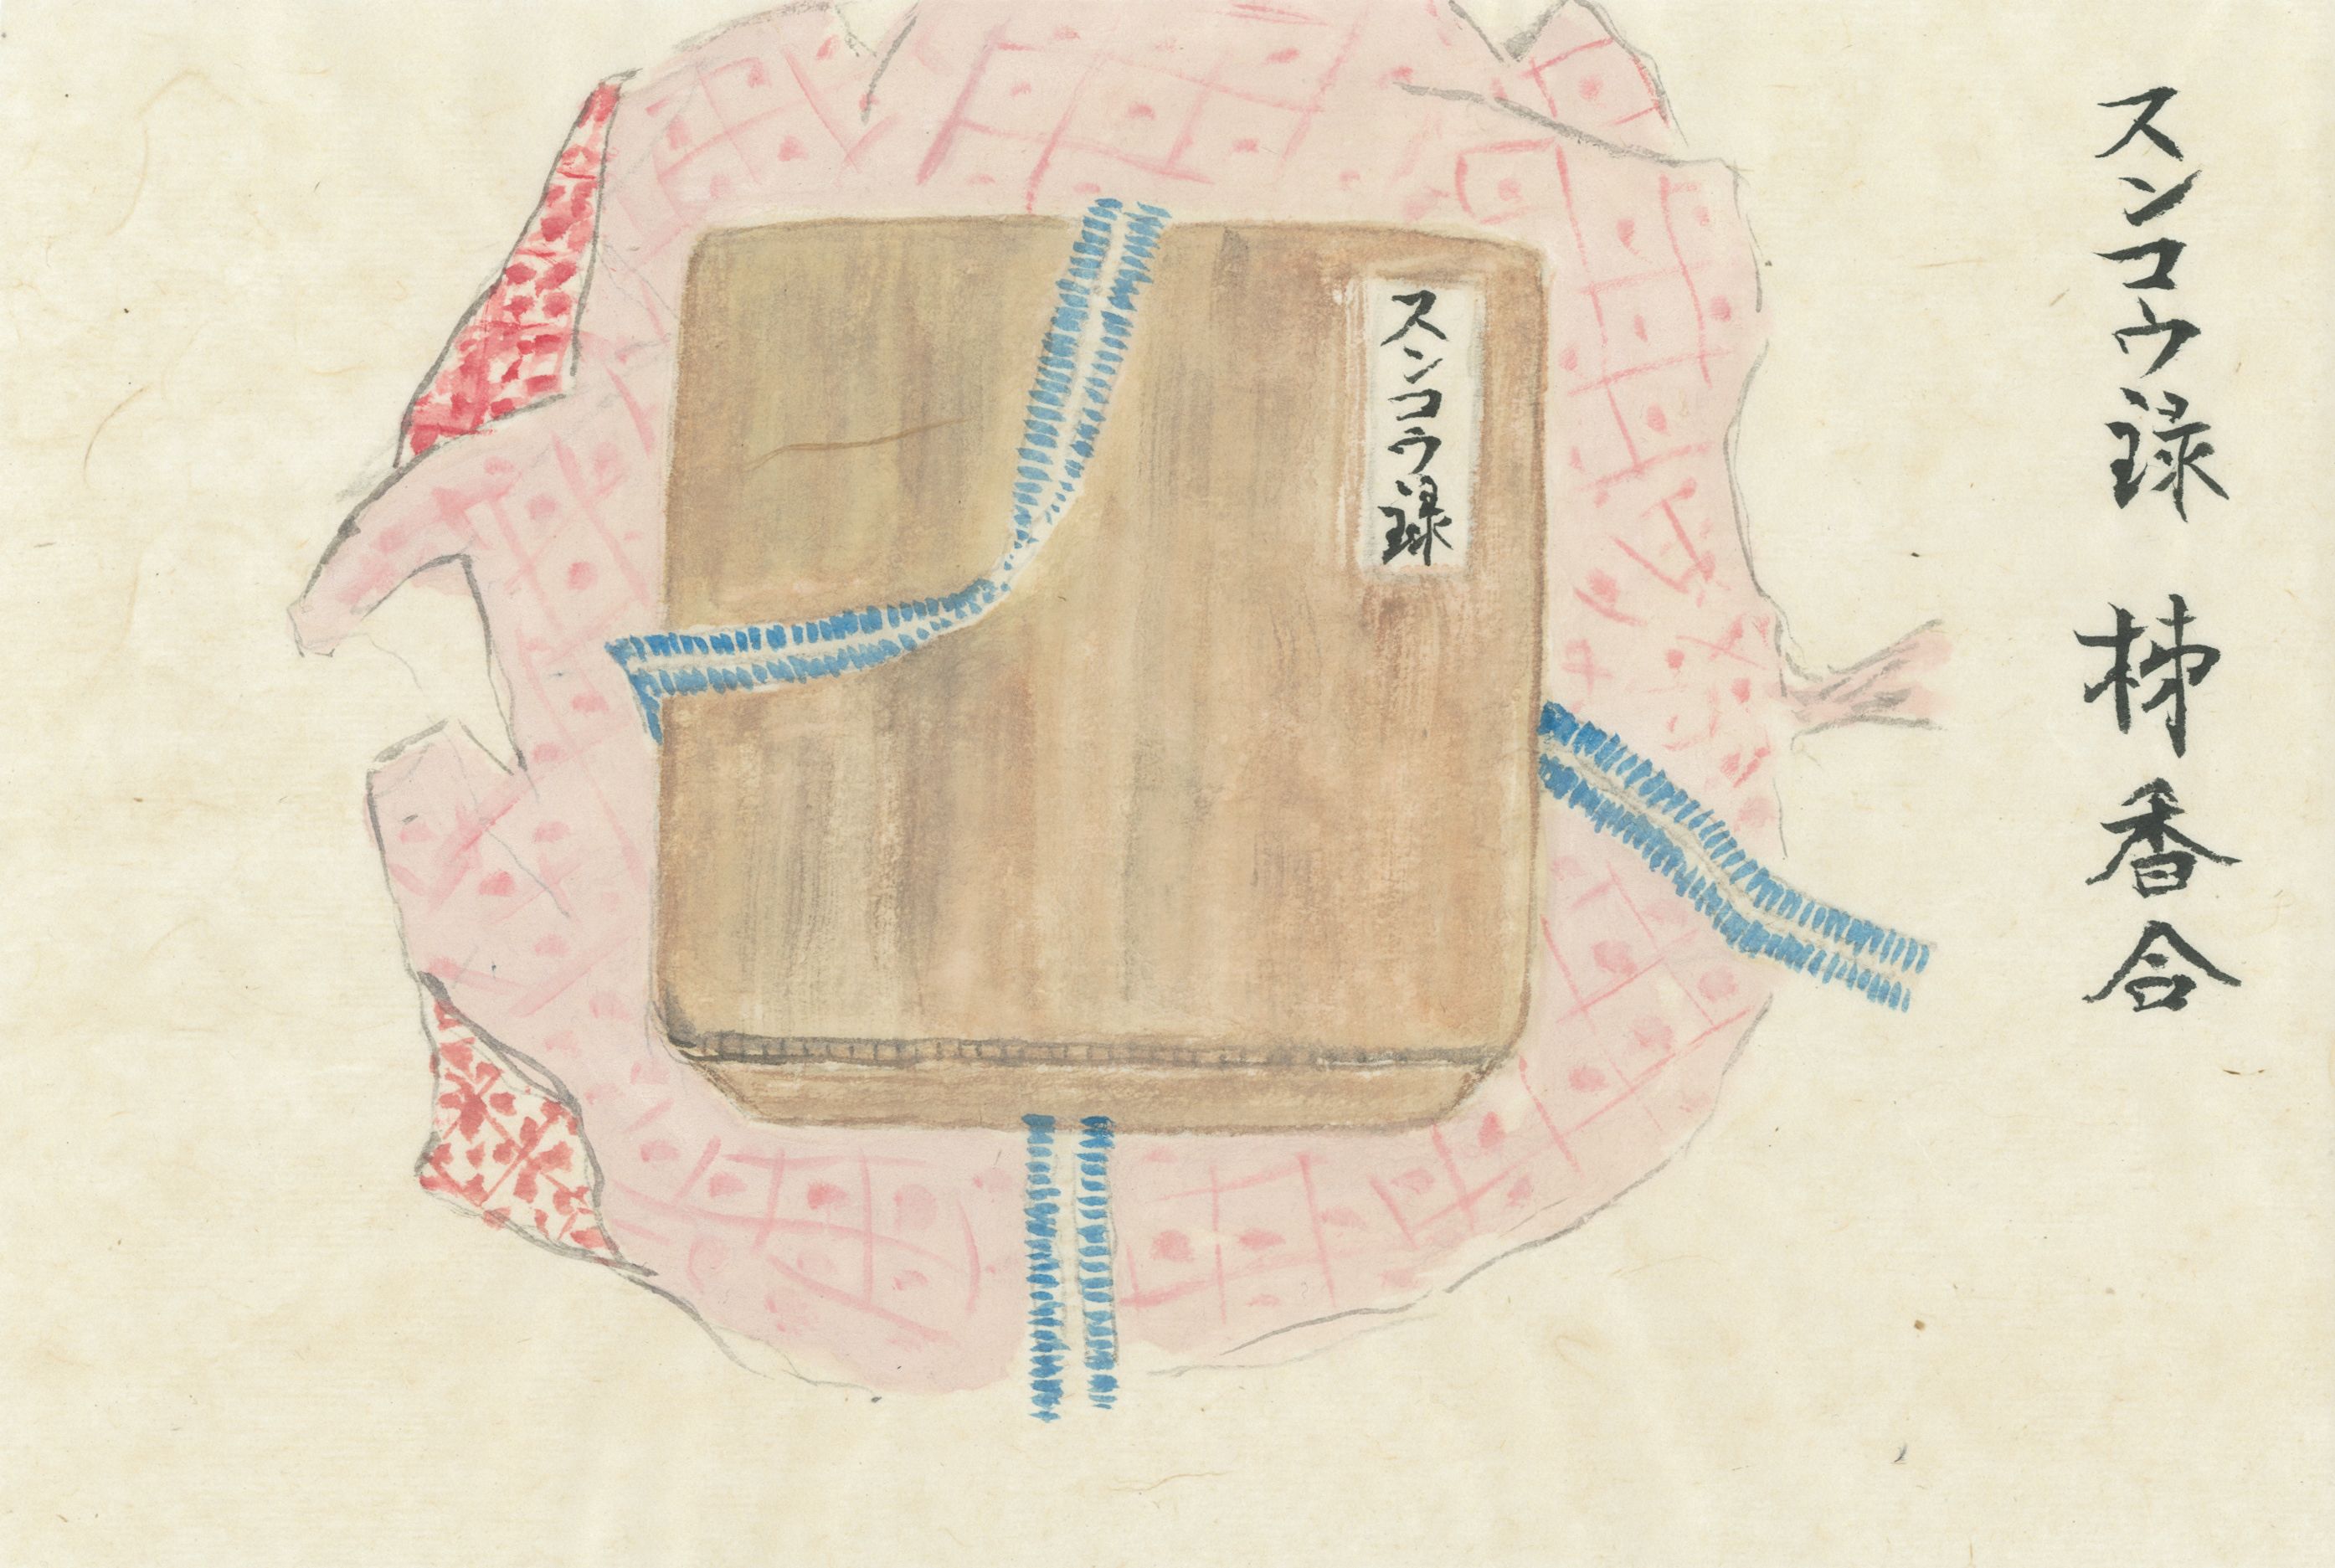 スンコウ録 柿香合
スンコウ録